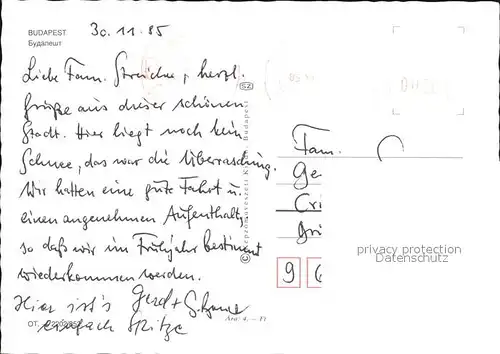 BUDAPEST
Будапешт
30.11.85
Liebe Fam. herzl.
Grüße aus dieser schönen
Stadt. Hier liegt noch kein
Schnee, das war die Überraschung.
Wir hatten eine gute Fahrt u.
einen angenehmen Aufenthalt,
so daß wir im Frühjahr bestimmt
wiederkommen werden.
Hier ist's Gerd +
einfach Spitze
SZ
Képzőművészeti Budapest
Fam.
Ge
Cri
Gri
9 6
privacy protection
Datenschutz